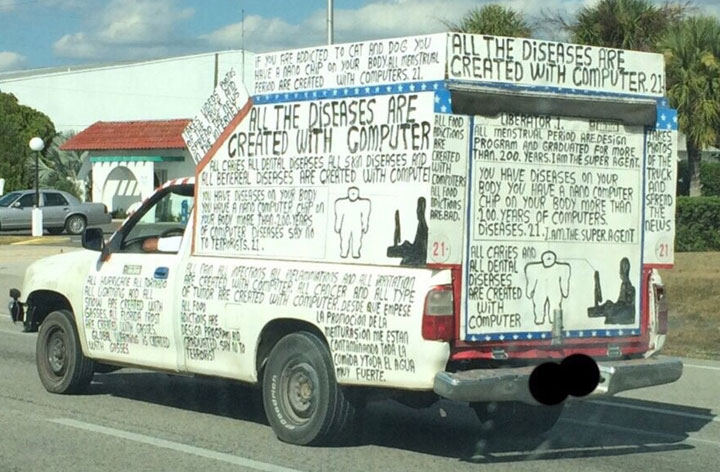 IF YOU ARE ADDICTED TO CAT AND DOG YOU
HAVE A NANO CHIP ON YOUR BODY ALL MENSTRUAL
PERIOD ARE CREATED WITH COMPUTERS. 21.
ALL THE DISEASES ARE
CREATED WITH COMPUTER. 21
ALL THE DISEASES ARE
CREATED WITH COMPUTER
ALL CARIES ALL DENTAL DISEASES ALL SKIN DISEASES AND
ALL DISEASES ARE CREATED WITH COMPUTER
YOU HAVE DISEASES ON YOUR BODY
YOU HAVE A NANO COMPUTER CHIP ON
YOUR BODY MORE THAN 200 YEARS
OF COMPUTER DISEASES SAY NO
TO TERRORISTS. 21.
ALL FOOD
ADICTIONS
ARE
CREATED
WITH
COMPUTERS
ALL FOOD
ADICTIONS
ARE BAD.
21
LIBERATOR 1.
ALL MENSTRUAL PERIOD ARE DESIGN
PROGRAM AND GRADUATED FOR MORE
THAN. 200. YEARS. I AM THE SUPER AGENT.
YOU HAVE DISEASES ON YOUR
BODY YOU HAVE A NANO COMPUTER
CHIP ON YOUR BODY MORE THAN
100 YEARS OF COMPUTERS
DISEASES. 21. I AM THE SUPER AGENT
ALL CARIES AND
ALL DENTAL
DISEASES
ARE CREATED
WITH
COMPUTER
TAKES
PHOTOS
OF THE
TRUCK
AND
SPREAD
THE
NEWS
21
ALL HURRICANE ALL
AND ALL
SNOW ARE CREATED WITH
GASSES ALL
ARE CREATED WITH
GASSES
GLOBAL WARMING IS CREATED
WITH GASSES
ALL INFECTIONS ALL INFLAMMATIONS AND ALL IRRITATION
ARE CREATED WITH COMPUTER ALL CANCER AND ALL TYPE
OF TUMOR ARE CREATED WITH COMPUTER. DESDE QUE EMPESE
LA PROMOCION DE LA
ME ESTAN
CONTAMINANDO TODA LA
COMIDA Y TODA EL AGUA
MUY FUERTE.
ALL
FOOD
ADICTIONS ARE
DESIGN PROGRAM AND
GRADUATED. SAY NO TO
TERRORIST